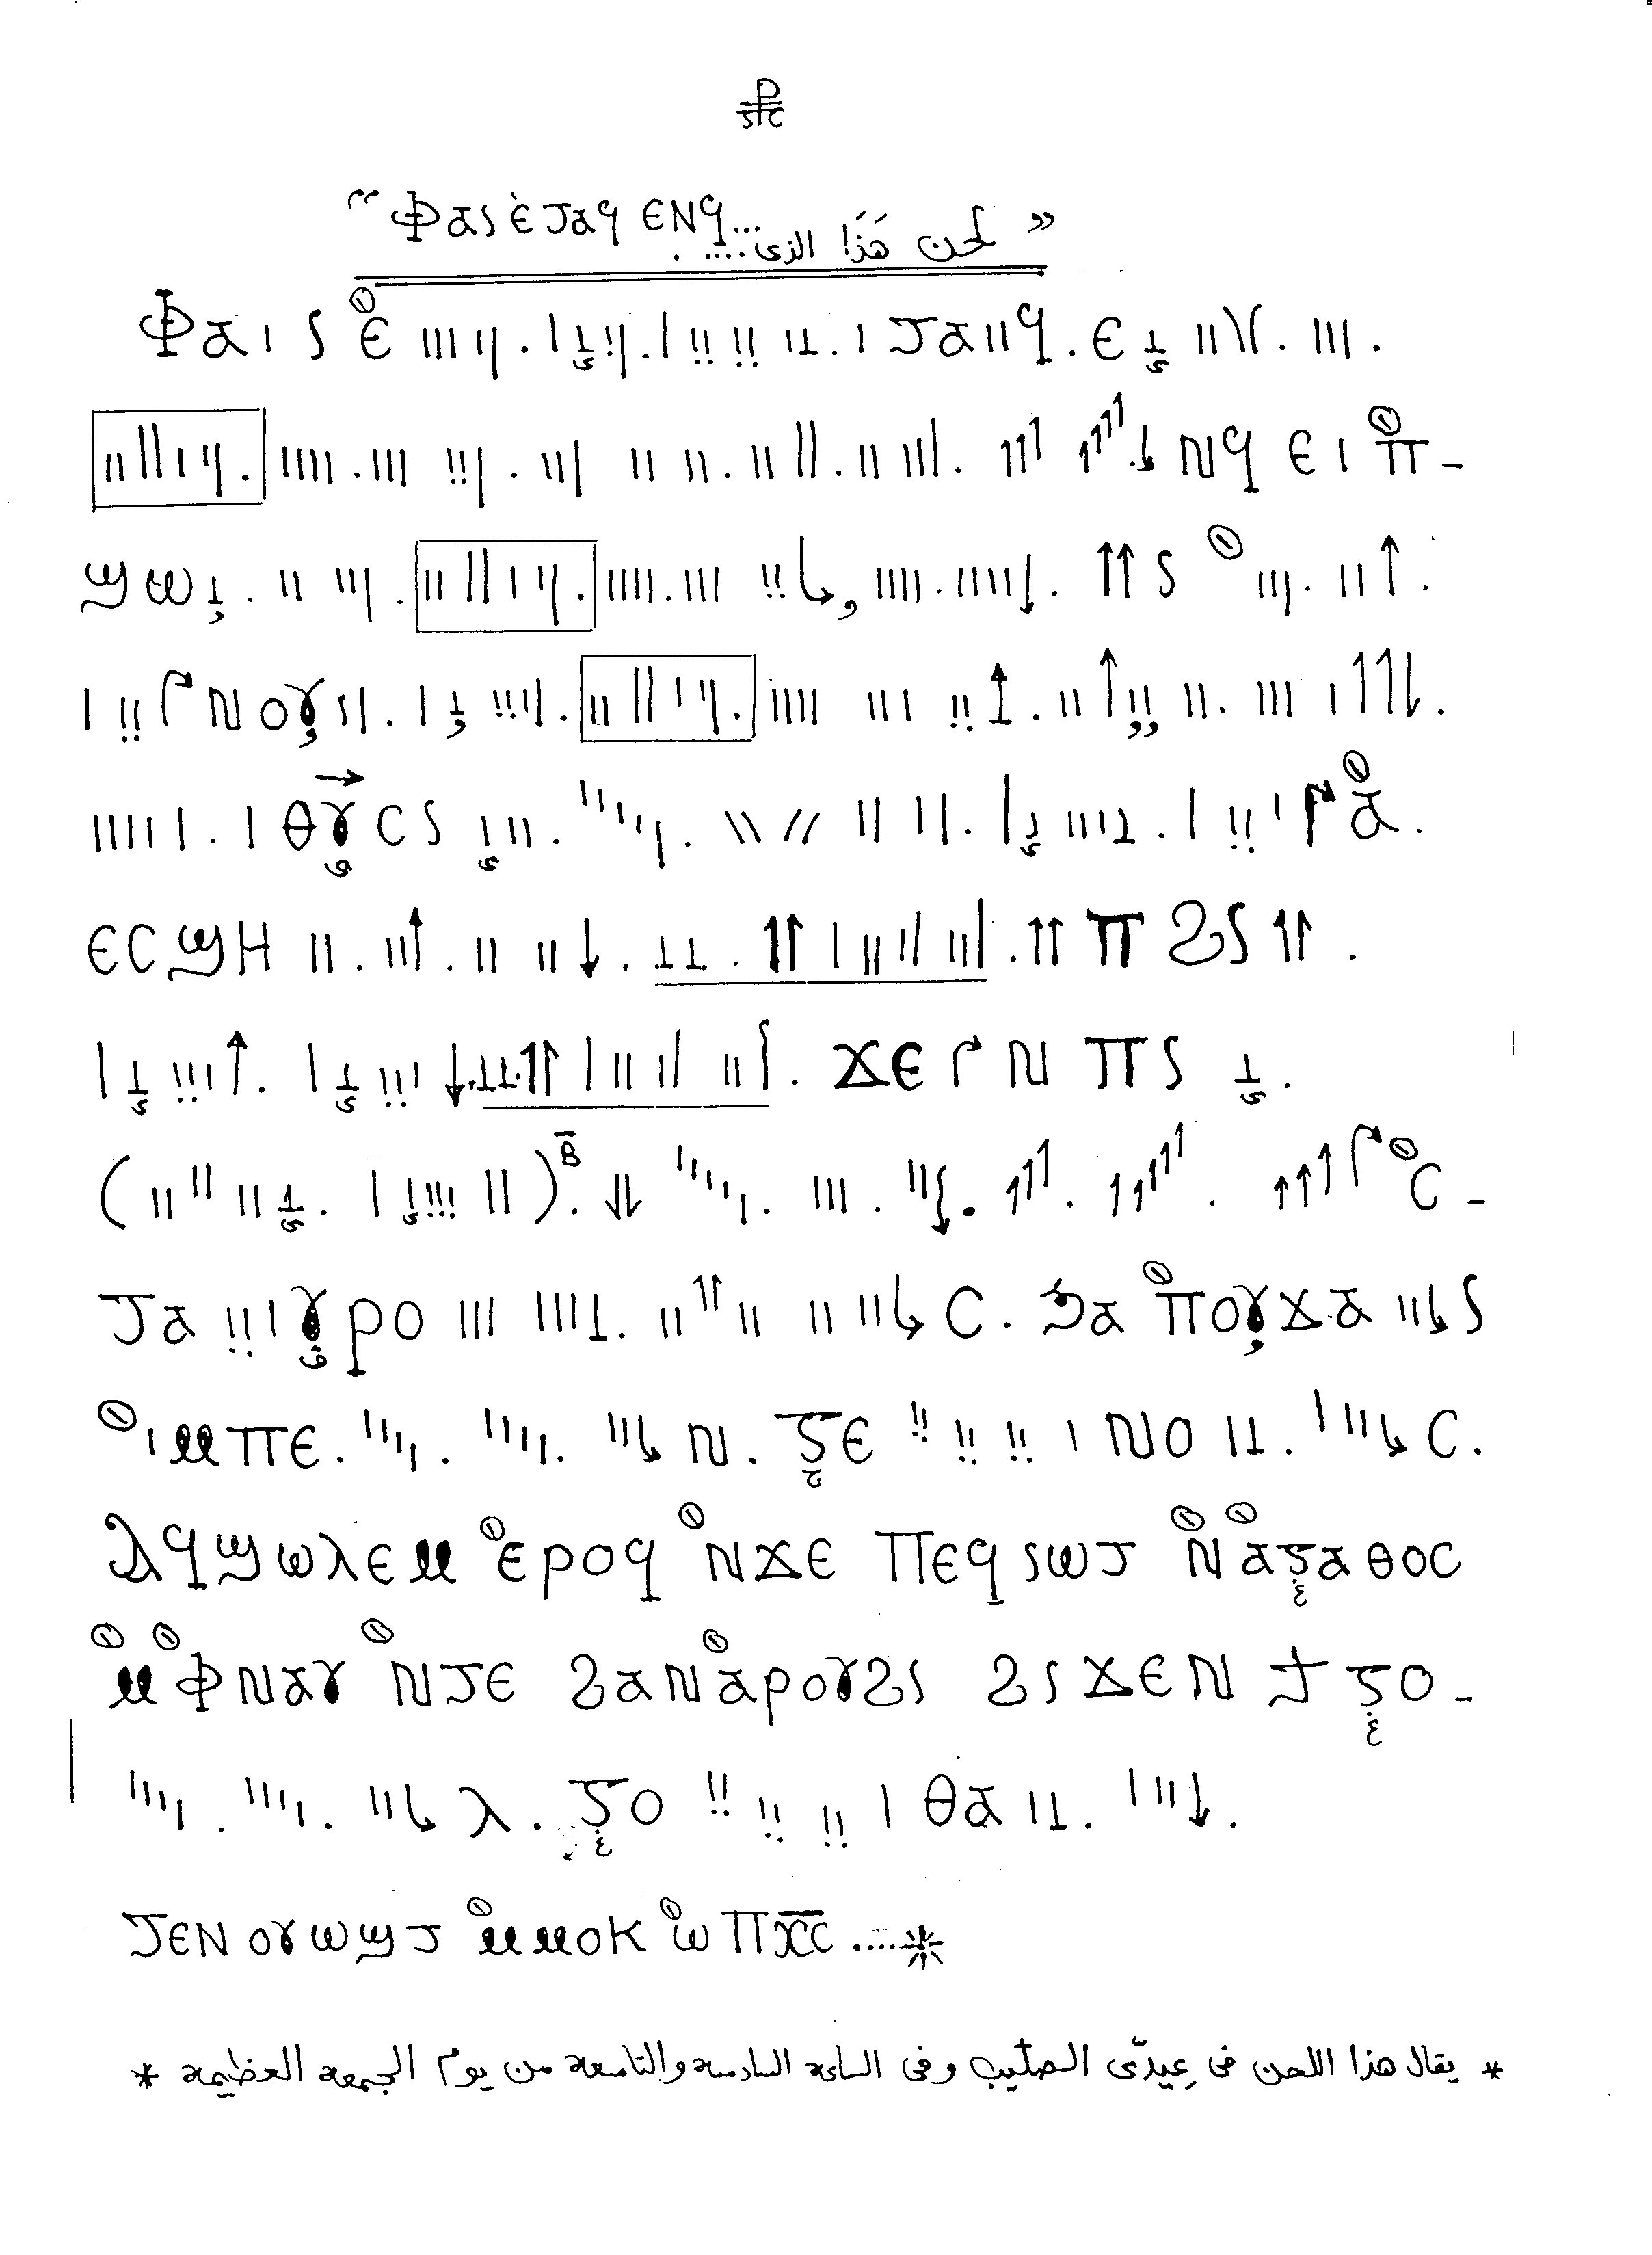 “ Ⲫⲁⲓ ⲉ̀ⲧⲁϥ ⲉⲛϥ...
لحن هَذَا الذى .... ”
Ⲫⲁ ⲓ ⲉ̀ ⲧⲁ ϥ . ⲉ
ⲛϥ ⲉ ⲡ̀-
ϣⲱ ⲓ
ⲛ ⲟⲩ
ⲑⲩⲥⲓ ⲁ̀ .
ⲉⲥϣⲏ ⲡ ϩⲓ
ϫⲉ ⲛ ⲡⲓ
( ) ⲃ̅ ⲥ̀-
ⲧⲁ ⲩⲣⲟ ⲥ . ϧⲁ ⲡ̀ⲟⲩϫⲁ ⲓ
ⲙⲡⲉ . ⲛ . ⲅⲉ ⲛⲟ ⲥ .
Ⲁϥϣⲱⲗⲉⲙ ⲉ̀ⲣⲟϥ ⲛ̀ϫⲉ Ⲡⲉϥⲓⲱⲧ ⲛ̀ⲁ̀ⲅⲁⲑⲟⲥ
ⲙ̀ⲫ̀ⲛⲁⲩ ⲛ̀ⲧⲉ ϩⲁⲛⲁ̀ⲣⲟⲩϩⲓ ϩⲓϫⲉⲛ ϯ ⲅⲟ-
ⲗ . ⲅⲟ ⲑⲁ
Ⲧⲉⲛⲟⲩⲱϣⲧ ⲙ̀ⲙⲟⲕ ⲱ̀ Ⲡⲭ̅ⲥ̅ ....*
* يقال هذا اللحن فى عِيدىّ الصليب وفى الساعة السادسة والتاسعة من يوم الجمعة العظيمة *